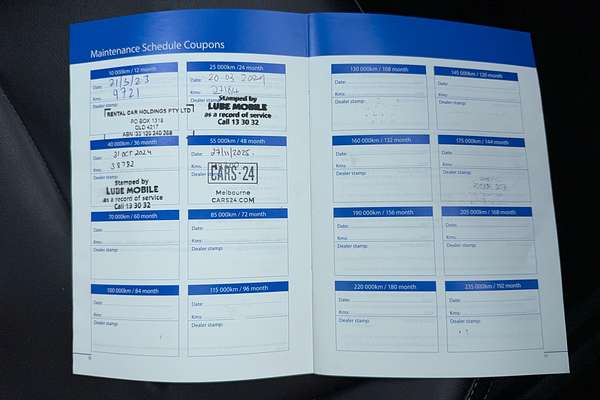 Maintenance Schedule Coupons
10 000km / 12 month
Date: 21/3/23
Kms: 9721
Dealer stamp:
RENTAL CAR HOLDINGS PTY LTD
PO BOX 1318
QLD 4217
25 000km /24 month
Date: 20 03 2024
Kms: 27164
Dealer stamp:
Stamped by
LUBE MOBILE
as a record of service
Call 13 30 32
40 000km / 36 month
Date: 31 OCT 2024
Kms: 38782
Stamped by
LUBE MOBILE
as a record of service
Call 13 30 32
55 000km / 48 month
Date: 27/11/2025.
Kms:
CARS·24
Melbourne
CARS24.COM
70 000km / 60 month
Date:
Kms:
Dealer stamp:
85 000km / 72 month
Date:
Kms:
Dealer stamp:
100 000km / 84 month
Date:
Kms:
Dealer stamp:
115 000km / 96 month
Date:
Kms:
Dealer stamp:
130 000km / 108 month
Date:
Kms:
Dealer stamp:
145 000km / 120 month
Date:
Kms:
Dealer stamp:
160 000km / 132 month
Date:
Kms:
Dealer stamp:
175 000km / 144 month
Date:
Kms:
Dealer stamp:
190 000km / 156 month
Date:
Kms:
Dealer stamp:
205 000km / 168 month
Date:
Kms:
Dealer stamp:
220 000km / 180 month
Date:
Kms:
Dealer stamp:
235 000km / 192 month
Date:
Kms:
Dealer stamp: